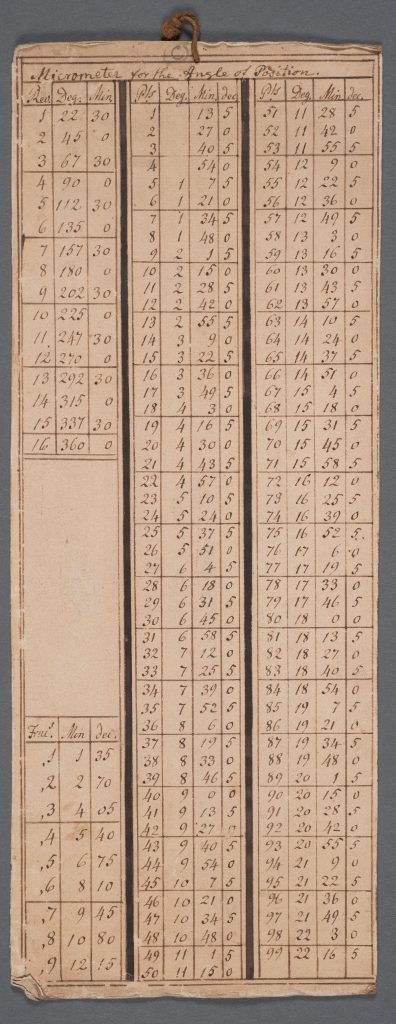 Micrometer for the Angle of Position.
Rev. Deg. Min
1 22 30
2 45 0
3 67 30
4 90 0
5 112 30
6 135 0
7 157 30
8 180 0
9 202 30
10 225 0
11 247 30
12 270 0
13 292 30
14 315 0
15 337 30
16 360 0
Frac.s Min dec.
,1 1 35
,2 2 70
,3 4 05
,4 5 40
,5 6 75
,6 8 10
,7 9 45
,8 10 80
,9 12 15
Pts Deg. Min. dec
1 13 5
2 27 0
3 40 5
4 54 0
5 1 7 5
6 1 21 0
7 1 34 5
8 1 48 0
9 2 1 5
10 2 15 0
11 2 28 5
12 2 42 0
13 2 55 5
14 3 9 0
15 3 22 5
16 3 36 0
17 3 49 5
18 4 3 0
19 4 16 5
20 4 30 0
21 4 43 5
22 4 57 0
23 5 10 5
24 5 24 0
25 5 37 5
26 5 51 0
27 6 4 5
28 6 18 0
29 6 31 5
30 6 45 0
31 6 58 5
32 7 12 0
33 7 25 5
34 7 39 0
35 7 52 5
36 8 6 0
37 8 19 5
38 8 33 0
39 8 46 5
40 9 0 0
41 9 13 5
42 9 27 0
43 9 40 5
44 9 54 0
45 10 7 5
46 10 21 0
47 10 34 5
48 10 48 0
49 11 1 5
50 11 15 0
Pts Deg. Min. dec.
51 11 28 5
52 11 42 0
53 11 55 5
54 12 9 0
55 12 22 5
56 12 36 0
57 12 49 5
58 13 3 0
59 13 16 5
60 13 30 0
61 13 43 5
62 13 57 0
63 14 10 5
64 14 24 0
65 14 37 5
66 14 51 0
67 15 4 5
68 15 18 0
69 15 31 5
70 15 45 0
71 15 58 5
72 16 12 0
73 16 25 5
74 16 39 0
75 16 52 5
76 17 6 0
77 17 19 5
78 17 33 0
79 17 46 5
80 18 0 0
81 18 13 5
82 18 27 0
83 18 40 5
84 18 54 0
85 19 7 5
86 19 21 0
87 19 34 5
88 19 48 0
89 20 1 5
90 20 15 0
91 20 28 5
92 20 42 0
93 20 55 5
94 21 9 0
95 21 22 5
96 21 36 0
97 21 49 5
98 22 3 0
99 22 16 5